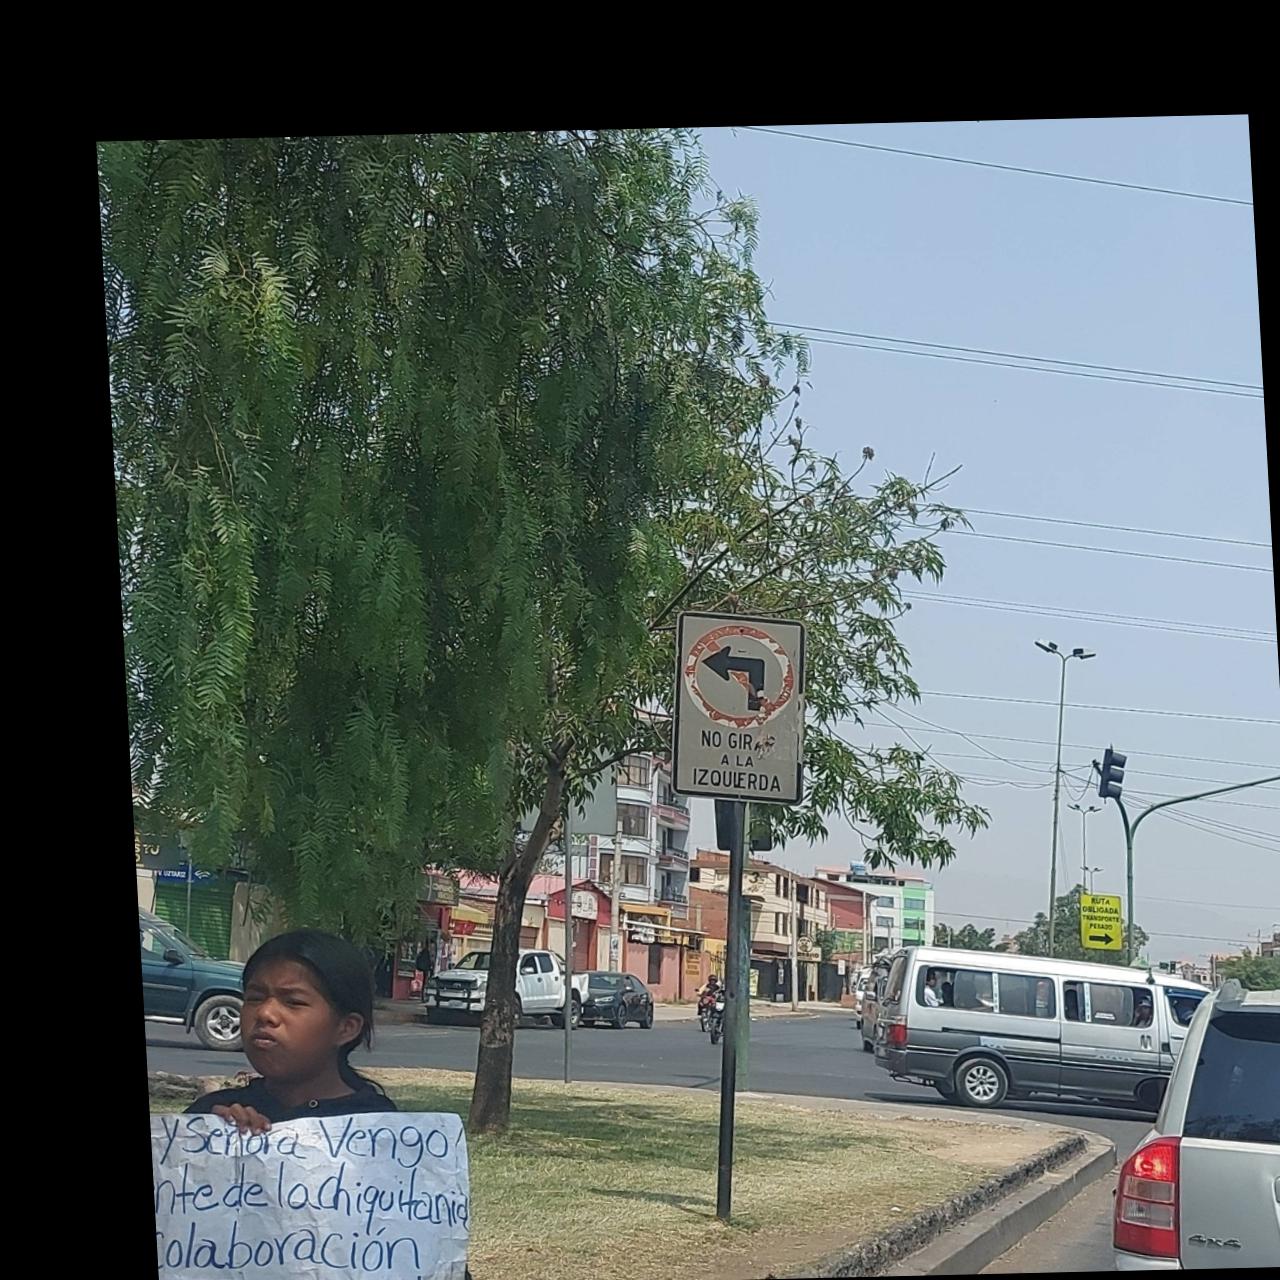 NO GIRAR
A LA
IZQUIERDA
RUTA
OBLIGADA
TRANSPORTE
PESADO
y Señora Vengo
nte de la chiquitania
colaboración
4x4